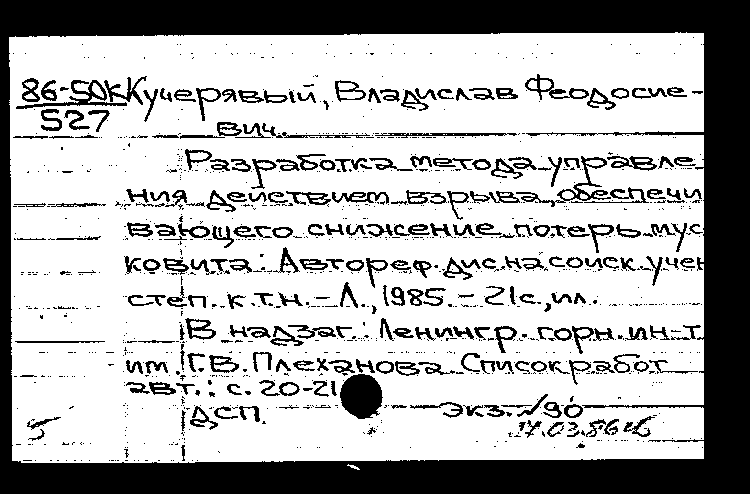 86-50к Кучерявый, Владислав Феодосие-
527 вич.
Разработка метода управле
ния действием взрыва, обеспечи
вающего снижение потерь мус
ковита: Автореф. дис. на соиск. учен
степ. к.т.н. - Л., 1985. - 21с., ил.
В надзаг.: Ленингр. горн. ин-т
им. Г.В. Плеханова. Список работ
авт.: с. 20-21
ДСП. Экз. №90
5 17.03.86